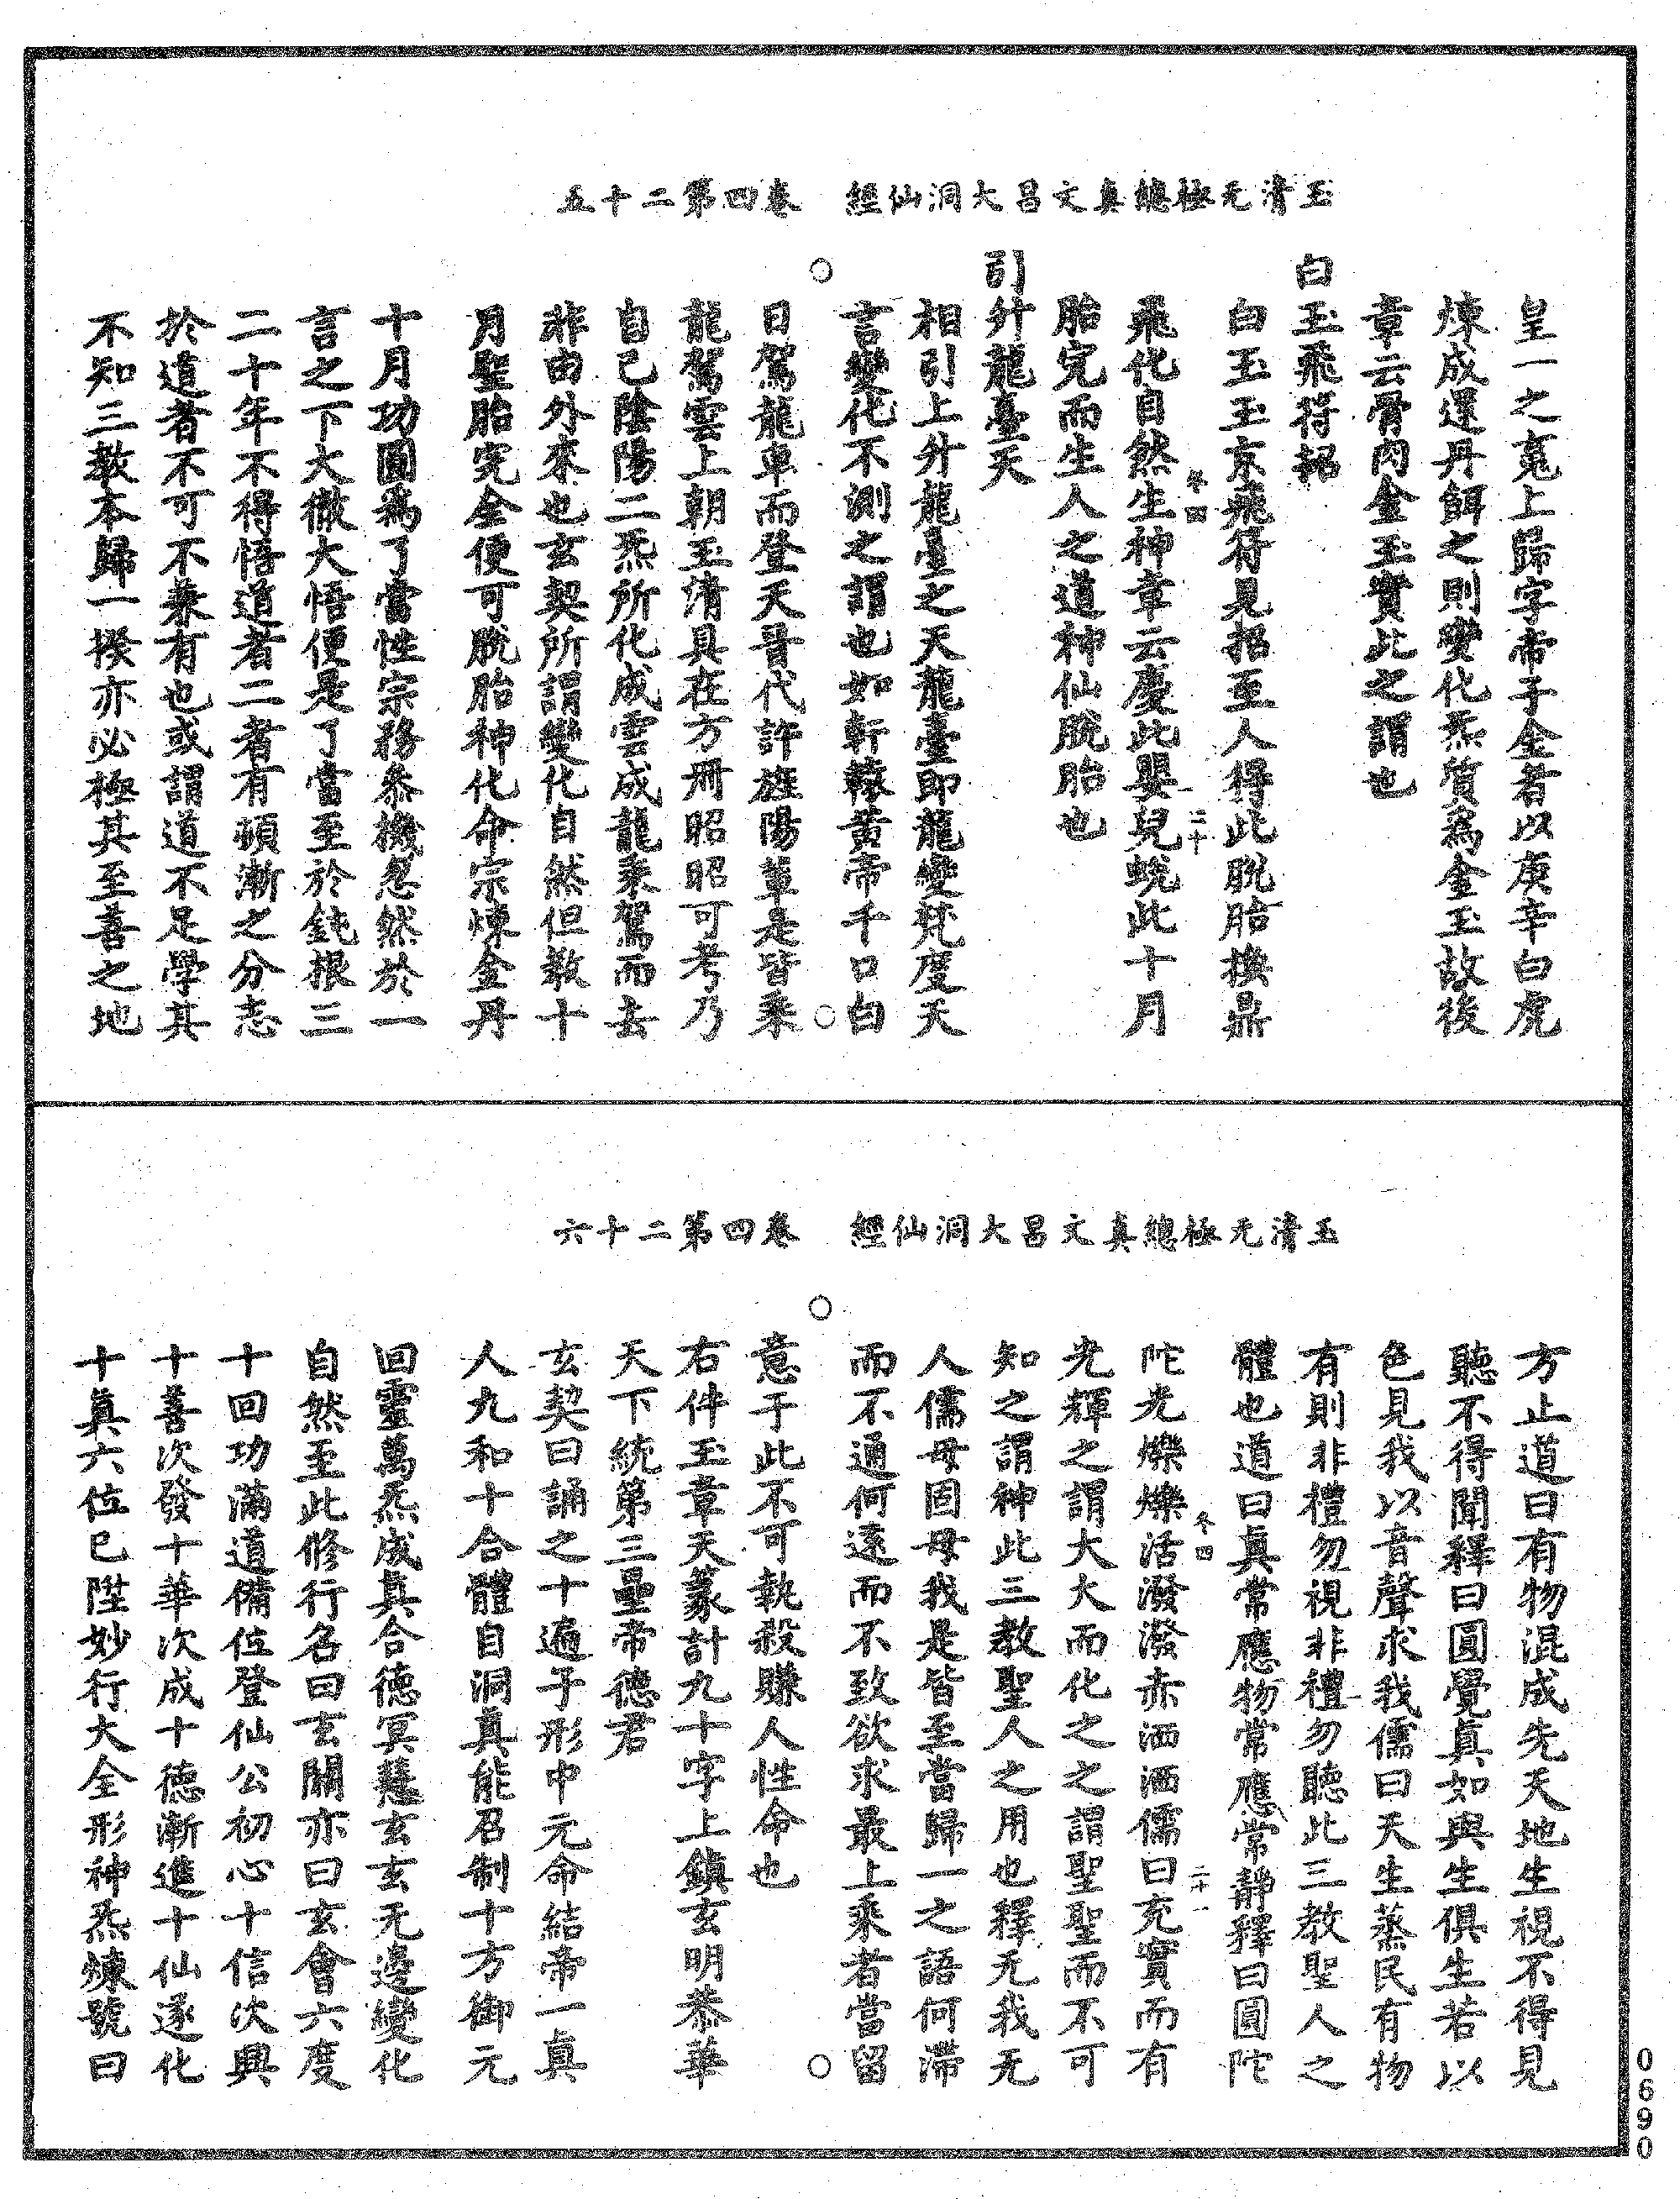 玉清无極總真文昌大洞仙經　卷四第二十五
皇一之䰟上歸字帝子金者以庚辛白虎
煉成還丹餌之則變化炁質為金玉故後
章云骨肉金玉實此之謂也
白玉飛符招
白玉玉京飛符見招至人得此脫胎換鼎
飛化自然生神章云慶此嬰兒蛻此十月
胎完而生人之道神仙脫胎也
引升龍臺天
相引上升龍臺之天龍臺即龍變梵度天
言變化不測之謂也如軒轅黃帝千口白
日駕龍車而登天晉代許旌陽輩是皆乘
龍駕雲上朝玉清具在方冊昭昭可考乃
自己陰陽二炁所化成雲成龍乘駕而去
非由外來也玄契所謂變化自然但教十
月聖胎完全便可脫胎神化命宗煉金丹
十月功圓為了當性宗務叅機忽然於一
言之下大徹大悟便是了當至於鈍根三
二十年不得悟道者二者有頓漸之分志
於道者不可不兼有也或謂道不足學其
不知三教本歸一揆亦必極其至善之地
卷四
二十
玉清无極總真文昌大洞仙經　卷四第二十六
方止道曰有物混成先天地生視不得見
聽不得聞釋曰圓覺真如與生俱生若以
色見我以音聲求我儒曰天生蒸民有物
有則非禮勿視非禮勿聽此三教聖人之
體也道曰真常應物常應常靜釋曰圓陀
陀光爍爍活潑潑赤洒洒儒曰充實而有
光輝之謂大大而化之之謂聖聖而不可
知之謂神此三教聖人之用也釋无我无
人儒母固母我是皆至當歸一之語何滯
而不通何遠而不致欲求最上乘者當留
意于此不可執殺賺人性命也
右件玉章天篆計九十字上鎮玄明恭華
天下統第三曍帝德君
玄契曰誦之十遍子形中元命結帝一真
人九和十合體自洞真能召制十方御元
回靈萬炁成真合德冥慧玄玄无邊變化
自然至此修行名曰玄關亦曰玄會六度
十回功滿道備位登仙公初心十信次興
十善次發十華次成十德漸進十仙遂化
十真六位已陞妙行大全形神炁煉號曰
卷四
二十一
0690